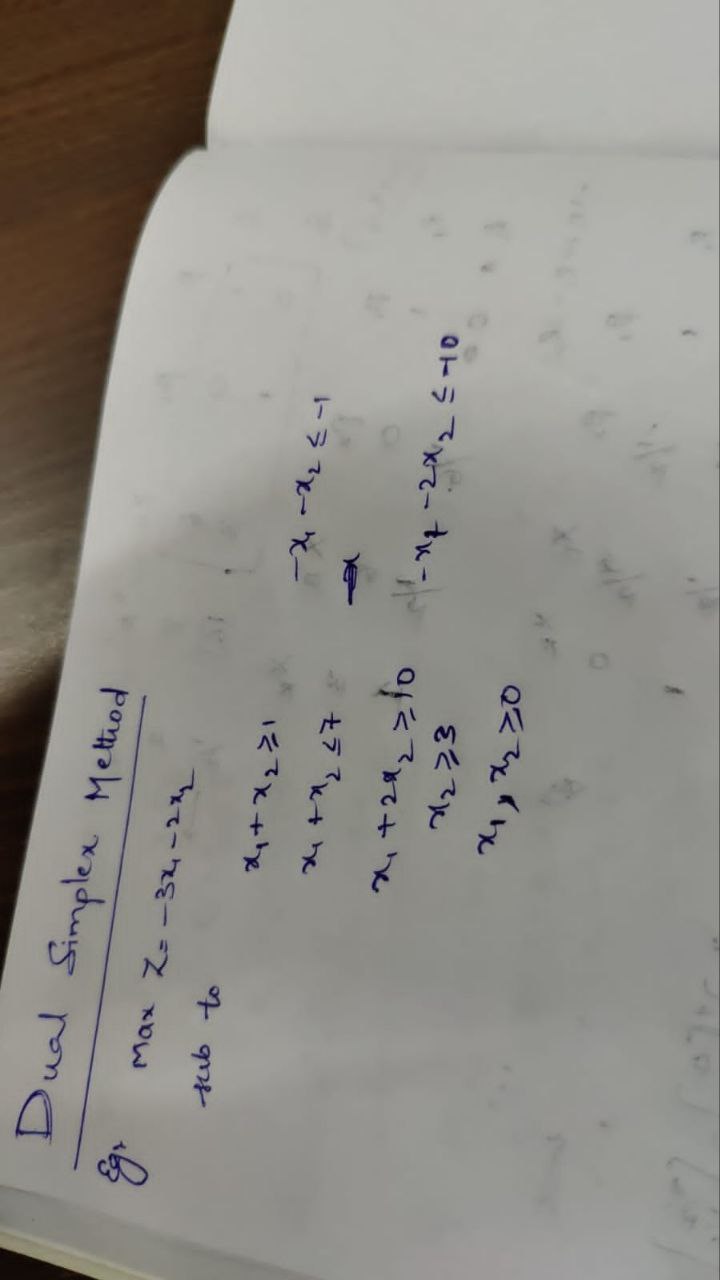 Dual Simplex Method
Eg:, Max Z = -3x₁ - 2x₂
sub to
x₁ + x₂ ≥ 1 -x₁ - x₂ ≤ -1
x₁ + x₂ ≤ 7
x₁ + 2x₂ ≥ 10 -x₁ - 2x₂ ≤ -10
x₂ ≥ 3
x₁, x₂ ≥ 0